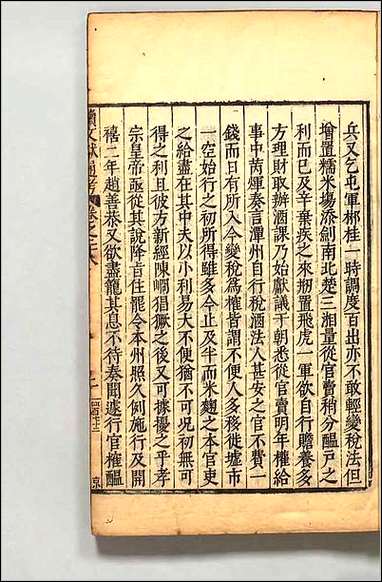 兵又乞屯軍郴桂一時調度百出亦不敢輕變税法但
增置糯米塲添創南北楚三湘量從官賣稍分醖戸之
利而已及辛棄疾之來剏置飛虎一軍欲自行贍養多
方理財取辦酒課乃始獻議于朝悉從官賣明年權給
事中芮煇奏言潭州自行税酒法人甚安之官不費一
錢而日有所入今變税為榷皆謂不便人多移徙墟市
一空始行之初所得雖多今止及半而米麴之本官吏
之給盡在其中夫以小利易大不便猶不可况初無可
得之利且彼方新經陳峒猖獗之後又可擾擾之乎孝
宗皇帝亟從其說降㫖住罷令本州照久例施行及開
禧二年趙善恭又欲盡籠其息不待奏聞遽行官榷醖
續文獻通考 卷之二